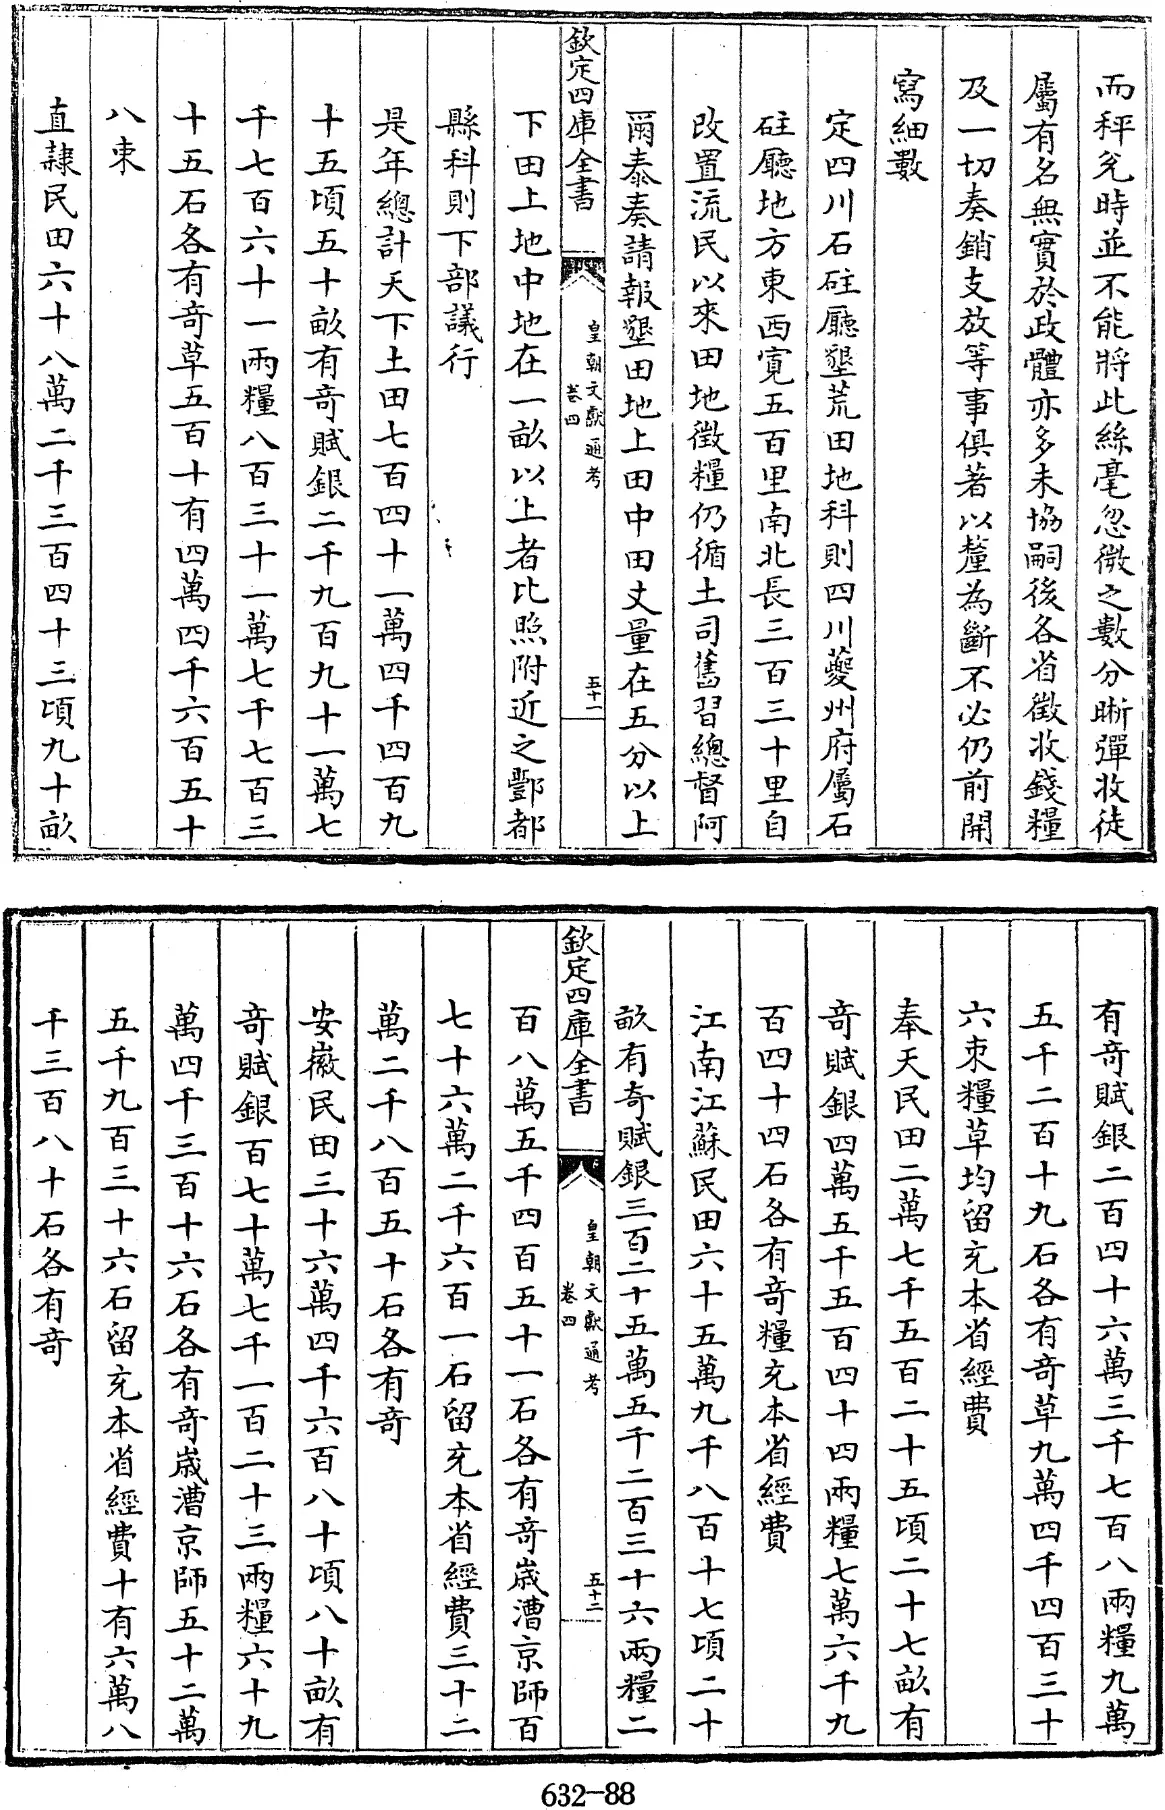 而秤兊時並不能將此絲毫忽微之數分晰彈收徒
屬有名無實於政體亦多未協嗣後各省徵收錢糧
及一切奏銷支放等事俱著以釐為斷不必仍前開
寫細數
定四川石砫廳墾荒田地科則四川夔州府屬石
砫廳地方東西寛五百里南北長三百三十里自
改置流民以來田地徵糧仍循土司舊習總督阿
爾泰奏請報墾田地上田中田丈量在五分以上
欽定四庫全書
皇朝文獻通考
卷四
五十一
下田上地中地在一畝以上者比照附近之酆都
縣科則下部議行
是年總計天下土田七百四十一萬四千四百九
十五頃五十畝有奇賦銀二千九百九十一萬七
千七百六十一兩糧八百三十一萬七千七百三
十五石各有奇草五百十有四萬四千六百五十
八束
直隷民田六十八萬二千三百四十三頃九十畝
有奇賦銀二百四十六萬三千七百八兩糧九萬
五千二百十九石各有奇草九萬四千四百三十
六束糧草均留充本省經費
奉天民田二萬七千五百二十五頃二十七畝有
奇賦銀四萬五千五百四十四兩糧七萬六千九
百四十四石各有奇糧充本省經費
江南江蘇民田六十五萬九千八百十七頃二十
畝有奇賦銀三百二十五萬五千二百三十六兩糧二
欽定四庫全書
皇朝文獻通考
卷四
五十二
百八萬五千四百五十一石各有奇嵗漕京師百
七十六萬二千六百一石留充本省經費三十二
萬二千八百五十石各有奇
安徽民田三十六萬四千六百八十頃八十畝有
奇賦銀百七十萬七千一百二十三兩糧六十九
萬四千三百十六石各有奇嵗漕京師五十二萬
五千九百三十六石留充本省經費十有六萬八
千三百八十石各有奇
632-88